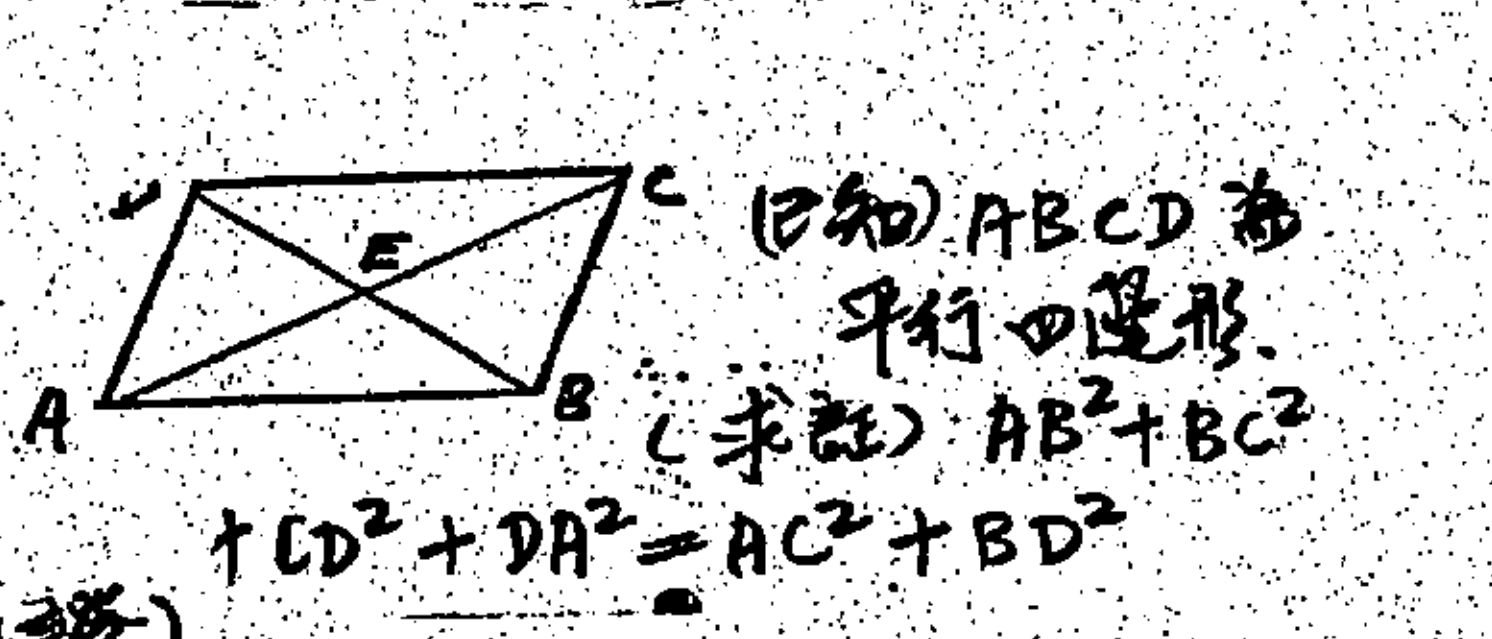 C
(已知) ABCD 為
E
平行四邊形.
A
B
(求証) AB²+BC²
+CD²+DA²=AC²+BD²
(證)